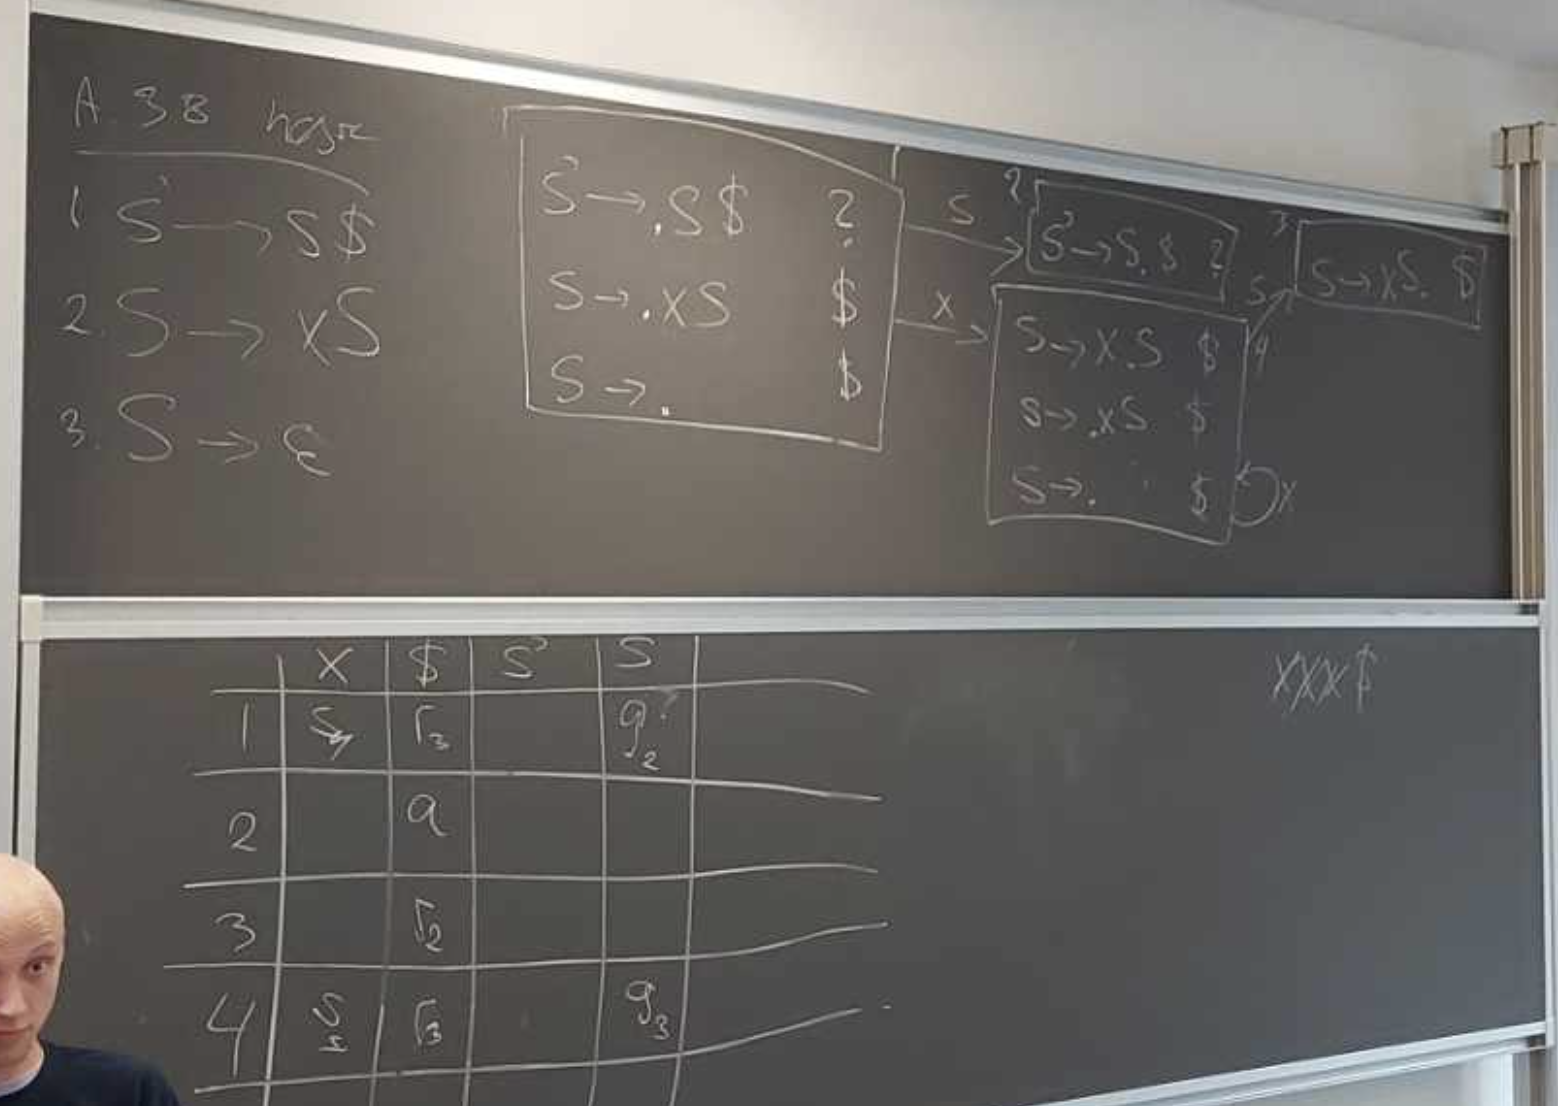 A. 3B
1 S' → S$
2. S → xS
3. S → ε
S' → .S$ ?
S → .xS $
S → . $
S
x
2
S' → S.$ ?
S → x.S $
S → .xS $
S → . $
4
x
S
3
S → xS. $
x $ S' S
1 s4 r3 g2
2 a
3 r2
4 s r3 g3
xxx$